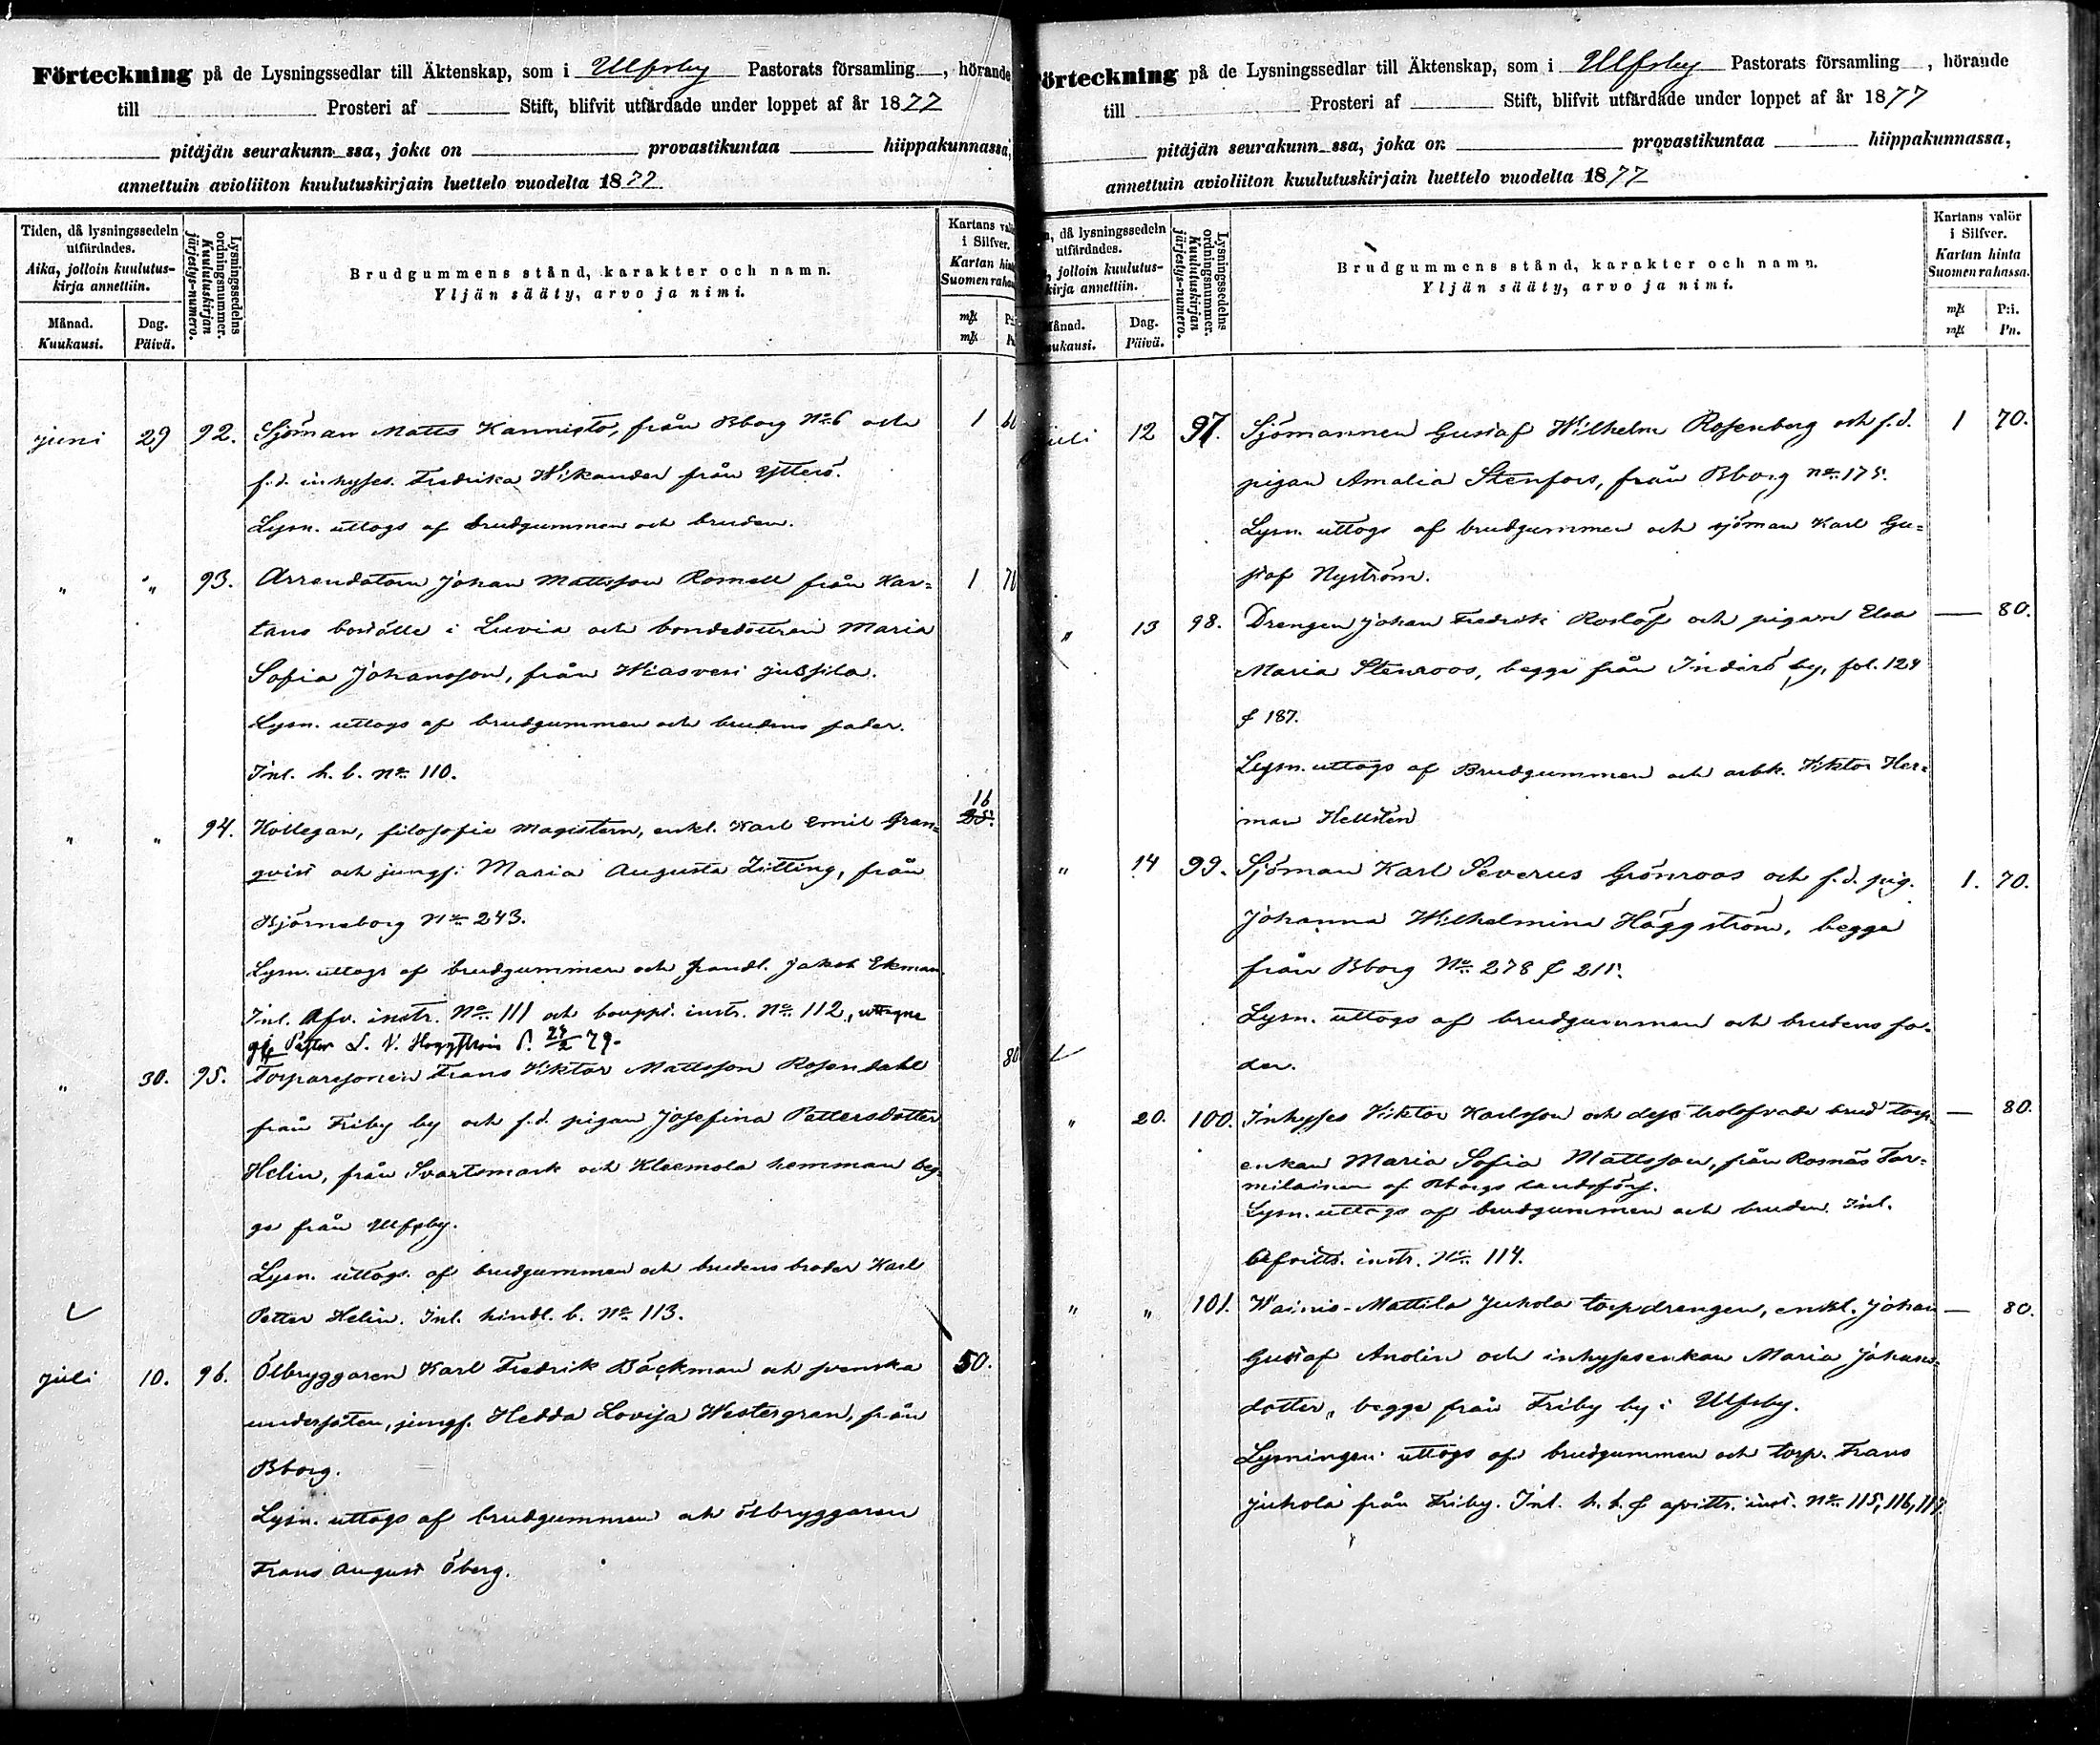 Förteckning på de Lysningssedlar till Äktenskap, som i Ulfsby Pastorats församling, hörande
till Prosteri af Stift, blifvit utfärdade under loppet af år 1877
pitäjän seurakunn ssa, joka on provastikuntaa hiippakunnassa,
annettuin avioliiton kuulutuskirjain luettelo vuodelta 1877
Tiden, då lysningssedeln utfärdades.
Aika, jolloin kuulutus-kirja annettiin.
Månad. Kuukausi.
Dag. Päivä.
Lysningssedelns ordningsnummer.
Kuulutuskirjan järjestys-numero.
Brudgummens stånd, karakter och namn.
Yljän sääty, arvo ja nimi.
Kartans i Silfver.
Kartan
Suomen
juni 29 92. Sjöman Matts Kannisto, från Bborg No 6 och 1
f.d. inhyses. Fredrika Wikander från Ytterö.
Lysn. uttogs af brudgummen och bruden.
" " 93. Arrendatorn Johan Mattsson Romell från Kar= 1
tano boställe i Luvia och bondedottren Maria
Sofia Johansson, från Wiasvesi Jussila.
Lysn. uttogs af brudgummen och brudens fader.
Inl. h. b. No 110.
" " 94. Kollegan, filosofie magistern, enkl. Karl Emil Gran= 16 25.
qvist och jungf. Maria Augusta Zitting, från
Björneborg No 243.
Lysn. uttogs af brudgummen och handl. Jakob Ekman.
Inl. Afv. instr. No 111 och bouppt. instr. No 112, uttagne
24/2 79.
" 30. 95. Torparesonen Frans Viktor Mattsson Rosendahl 80
från Friby by och f.d. pigan Josefina Pettersdotter
Helin, från Svartsmark och Kleemola hemman beg=
ge från Ulfsby.
Lysn. uttogs. af brudgummen och brudens broder Karl
Petter Helin. Inl. hindl. b. No 113.
juli 10. 96. Ölbryggaren Karl Fredrik Bäckman och svenska 50.
undersåten, jungf. Hedda Lovisa Westergran, från
Bborg.
Lysn. uttogs af brudgummen och ölbryggaren
Frans August Öberg.
Förteckning på de Lysningssedlar till Äktenskap, som i Ulfsby Pastorats församling, hörande
till Prosteri af Stift, blifvit utfärdade under loppet af år 1877
pitäjän seurakunn ssa, joka on provastikuntaa hiippakunnassa,
annettuin avioliiton kuulutuskirjain luettelo vuodelta 1877
då lysningssedeln utfärdades.
jolloin kuulutus-kirja annettiin.
Månad.
Dag. Päivä.
Lysningssedelns ordningsnummer.
Kuulutuskirjan järjestys-numero.
Brudgummens stånd, karakter och namn.
Yljän sääty, arvo ja nimi.
Kartans valör i Silfver.
Kartan hinta Suomen rahassa.
P:i. Pn.
juli 12 97. Sjömannen Gustaf Wilhelm Rosenberg och f.d. 1 70.
pigan Amalia Stenfors, från Bborg No 175.
Lysn. uttogs af brudgummen och sjöman Karl Gu=
staf Nyström.
" 13 98. Drengen Johan Fredrik Roslöf och pigan Elsa — 80.
Maria Stenroos, begge från Inderö by, fol. 124
& 187.
Lysn. uttogs af Brudgummen och arbk. Viktor Her=
man Hellstén
" 14 99. Sjöman Karl Severus Grönroos och f.d. pig. 1. 70.
Johanna Wilhelmina Häggström, begge
från Bborg No 278 & 211.
Lysn. uttogs af brudgummen och brudens fa=
der.
" 20. 100. Inhyses Viktor Karlsson och dess trolofvade brud torp. — 80.
enkan Maria Sofia Mattsson, från Rosnäs Tor=
milainen af Bborgs landsförs.
Lysn. uttogs af brudgummen och bruden. Inl.
Afvitts. instr. No 114.
" " 101. Wainio-Mattila Juhola torpdrengen, enkl. Johan — 80.
Gustaf Anolin och inhysesenkan Maria Johans=
dotter, begge från Friby by i Ulfsby.
Lysningen uttogs af brudgummen och torp. Frans
Juhola från Friby. Inl. h. b. & afvitts. inst. No 115, 116, 117.